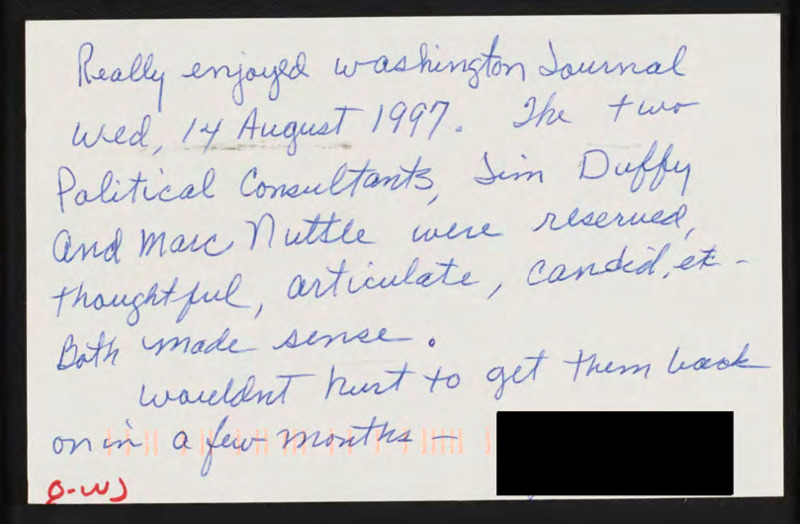 Really enjoyed Washington Journal
Wed, 14 August 1997. The two
Political Consultants, Jim Duffy
and Marc Nuttle were reserved,
thoughtful, articulate, candid, etc -
Both made sense.
Wouldnt hurt to get them back
on in a few months -